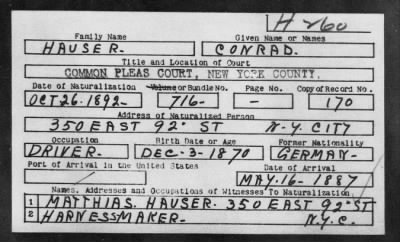 H 260
Family Name Given Name or Names
HAUSER. CONRAD.
Title and Location of Court
COMMON PLEAS COURT, NEW YORK COUNTY.
Date of Naturalization Volume or Bundle No. Page No. Copy of Record No.
OCT 26. 1892- 716- - 170
Address of Naturalized Person
350 EAST 92D ST N.Y. CITY
Occupation Birth Date or Age Former Nationality
DRIVER. DEC-3-1870 GERMAN-
Port of Arrival in the United States Date of Arrival
MAY-16-1887
Names, Addresses and Occupations of Witnesses To Naturalization
1 MATTHIAS. HAUSER. 350 EAST 92D ST
2 HARNESSMAKER- N.Y.C.